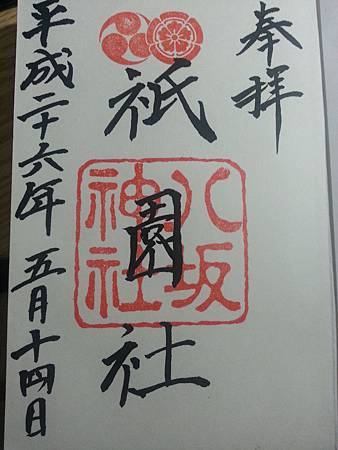 奉拝
祇園社
八坂
神社
平成二十六年五月十四日